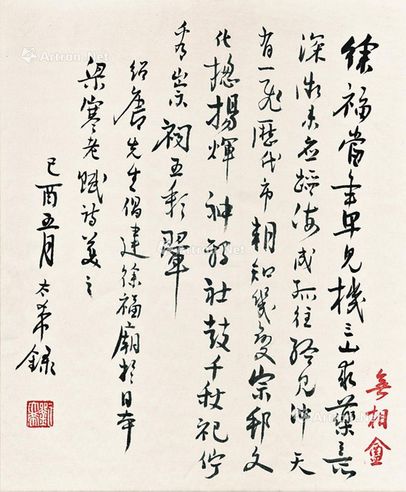 無相盦
徐福當年早見機三山求藥言
深微未應蹈海成孤往終見沖天
有一飛歷代市朝知幾變宗邦文
化摠揚輝神鴉社鼓千秋祀佇
看崇祠五彩翬
紹唐先生倡建徐福廟於日本
梁寒老賦詩美之
己酉五月太希錄
Artron.Net